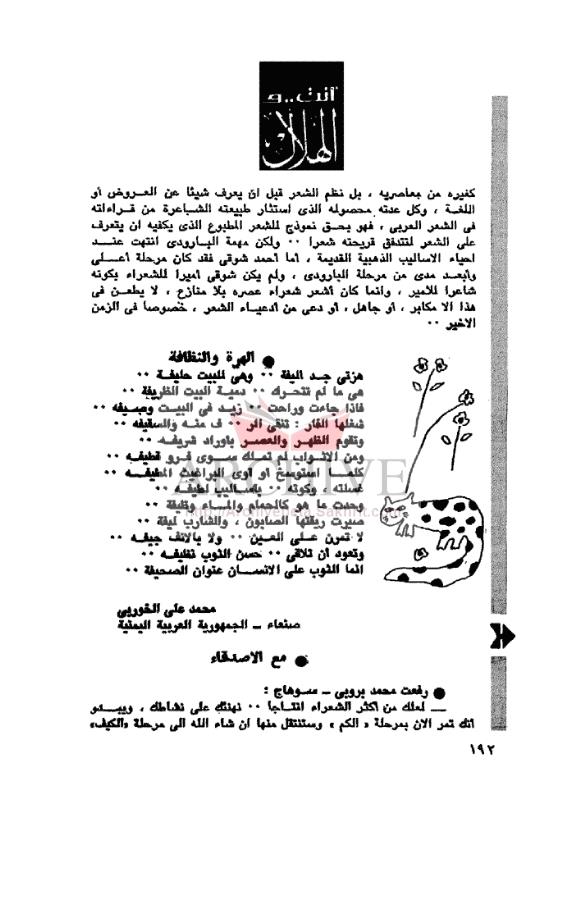 أنت .. و
الهلال
كغيره من معاصريه ، بل نظم الشعر قبل ان يعرف شيئا عن العروض أو
اللغة ، وكل عدته محصوله الذى استثار طبيعته الشاعرة من قراءاته
فى الشعر العربى ، فهو بحق نموذج للشعر المطبوع الذى يكفيه ان يتعرف
على الشعر لتتدفق قريحته شعرا ٠٠ ولكن مهمة البارودى انتهت عند
احياء الاساليب الذهبية القديمة ، أما أحمد شوقى فقد كان مرحلة أعلى
وأبعد مدى من مرحلة البارودى ، ولم يكن شوقى أميرا للشعراء بكونه
شاعرا للأمير ، وانما كان أشعر شعراء عصره بلا منازع ، لا يطعن فى
هذا الا مكابر ، أو جاهل ، أو دعى من أدعياء الشعر ، خصوصا فى الزمن
الاخير ٠٠
● الهرة والنظافة
هرتى جد اليفة ٠٠ وهى للبيت حليفة ٠٠
هى ما لم تتحرك ٠٠ دمية البيت الظريفة ٠٠
فاذا جاءت وراحت ٠٠ زيد فى البيت وصيفه ٠٠
شغلها الفار : تنقى الرف منه والسقيفه ٠٠
وتقوم الظهر والعصر بأوراد شريفه ٠٠
ومن الاثواب لم تملك سوى فرو قطيفه ٠٠
كلما استوسخ أو آوى البراغيث المطيفه ٠٠
غسلته ، وكوته ٠٠ بأساليب لطيفه ٠٠
وحدت ما هو كالحمام والماء وظيفة ٠٠
صيرت ريقتها الصابون ، والشارب ليفة ٠٠
لا تمرن على العين ٠٠ ولا بالانف جيفه ٠٠
وتعود ان تلاقى ٠٠ حسن الثوب نظيفه ٠٠
انما الثوب على الانسان عنوان الصحيفة ٠٠
محمد على
صنعاء ــ الجمهورية العربية اليمنية
● مع الاصدقاء
● رفعت محمد بروبى ــ سوهاج :
ــ لعلك من أكثر الشعراء انتاجا ٠٠ نهنئك على نشاطك ، ويبدو
انك تمر الان بمرحلة « الكم » وستنتقل منها ان شاء الله الى مرحلة «الكيف»
١٩٢
ARCHIVE